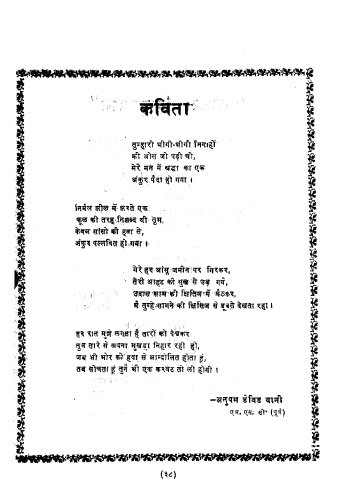 कविता
तुम्हारी भीगी-भीगी निगाहों
की ओस जो पड़ी थी,
मेरे मन में श्रद्धा का एक
अंकुर पैदा हो गया ।
निर्मल झील में झरते एक
फूल की तरह-निःशब्द थी तुम,
केवल सांसों की हवा से,
अंकुर पल्लवित हो गया ।
मेरे हर आंसू जमीन पर गिरकर,
तेरी आहट की धुंध से पड़ गये,
उदास शाम की क्षितिज में बैठकर,
मैं तुम्हे सामने की क्षितिज से डूबते देखता रहा ।
हर रात मुझे लगता है तारों को देखकर
तुम तारे से अपना मुखड़ा निहार रही हो,
जब भी भोर की हवा से आन्दोलित होता हूं,
तब सोचता हूं तुमने भी एक करवट तो ली होगी ।
–अनुपम डेविड बानी
एम. एस. सी॰ (पूर्व)
(२८)